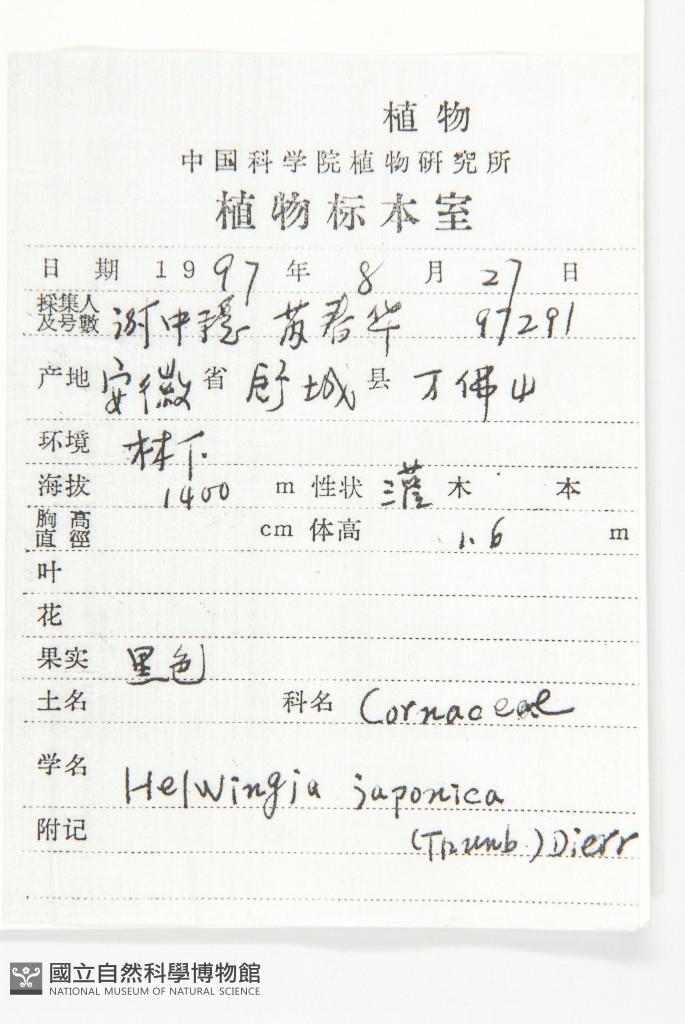 植物
中国科学院植物研究所
植物标本室
日期 1997年 8月 27日
採集人及号數 中穏 春华 97291
产地 安徽省 舒城县 万佛山
环境 林下.
海拔 1400 m 性状 灌木 本
胸高直徑 cm 体高 1.6 m
叶
花
果实 黑色
土名 科名 Cornaceae
学名 Helwingia japonica
附记 (Thunb.) Dierr
國立自然科學博物館
NATIONAL MUSEUM OF NATURAL SCIENCE